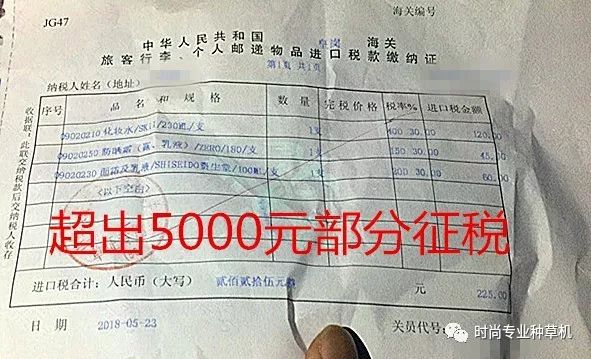 JG47
海关编号
中华人民共和国 皇岗 海关
旅客行李、个人邮递物品进口税款缴纳证
第1页 共1页
纳税人姓名(地址)
序号 品名和规格 数量 完税价格 税率% 进口税金额
09020210 化妆水/SKII/230ML/支 1支 400 30.00 120.00
09020250 防晒霜(露、乳液)/ZERO/180/支 1支 150 30.00 45.
09020230 面霜及乳液/SHISEIDO资生堂/100ML/ 1支 200 30.0 60.00
(以下空白)
超出5000元部分征税
进口税合计:人民币(大写) 贰佰贰拾伍元 元 225.00
日期 2018-05-23 关员代号:
收据联:此联交纳税款后交纳税人收存
时尚专业种草机